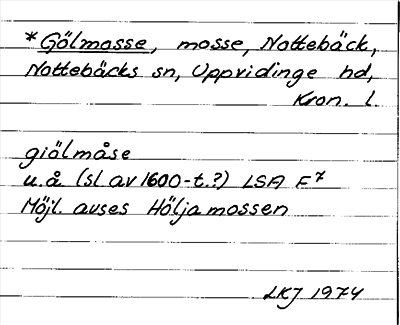 *Gölmosse, mosse, Nottebäck,
Nottebäcks sn, Uppvidinge hd,
Kron. l.
giölmåse
u.å. (sl av 1600-t.?) LSA F7
Möjl. avses Höljamossen
LKJ 1974